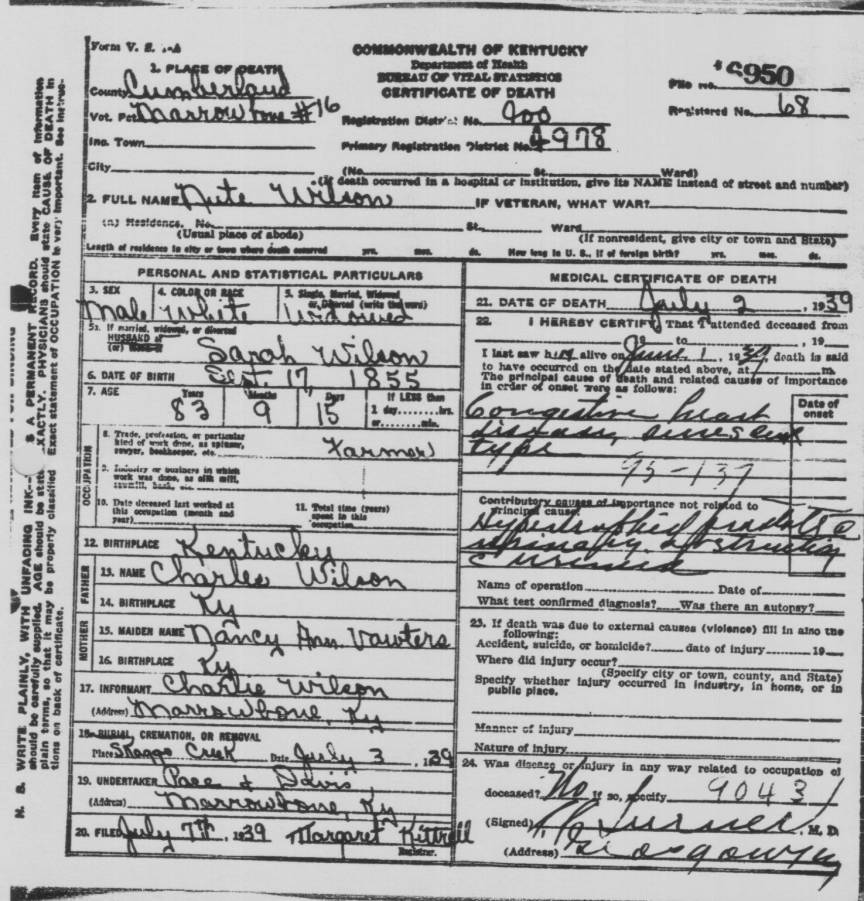 Form V. S. 1-A
COMMONWEALTH OF KENTUCKY
Department of Health
BUREAU OF VITAL STATISTICS
CERTIFICATE OF DEATH
File No. 6950
Registered No. 68
1. PLACE OF DEATH
County Cumberland
Vot. Pct Marrowbone #16
Inc. Town
City
Registration District No. 900
Primary Registration District No. 4978
(No. St. Ward)
(If death occurred in a hospital or institution, give its NAME instead of street and number)
2. FULL NAME Nute Wilson IF VETERAN, WHAT WAR?
(a) Residence. No. St. Ward
(Usual place of abode) (If nonresident, give city or town and State)
Length of residence in city or town where death occurred yrs. mos. ds. How long in U. S., if of foreign birth? yrs. mos. ds.
PERSONAL AND STATISTICAL PARTICULARS
3. SEX 4. COLOR OR RACE 5. Single, Married, Widowed
or Divorced (write the word)
Male White Widowed
5a. If married, widowed, or divorced
HUSBAND of
(or)
Sarah Wilson
6. DATE OF BIRTH Sept. 17, 1855
7. AGE Years Months Days If LESS than
1 day........hrs.
or........min.
83 9 15
OCCUPATION
8. Trade, profession, or particular
kind of work done, as spinner,
sawyer, bookkeeper, etc.
Farmer
9. Industry or business in which
work was done, as silk mill,
sawmill, bank, etc.
10. Date deceased last worked at
this occupation (month and
year)
11. Total time (years)
spent in this
occupation
12. BIRTHPLACE Kentucky
FATHER
13. NAME Charles Wilson
14. BIRTHPLACE Ky
MOTHER
15. MAIDEN NAME Nancy Ann Vawters
16. BIRTHPLACE Ky
17. INFORMANT Charlie Wilson
(Address) Marrowbone, Ky
18. BURIAL, CREMATION, OR REMOVAL
Place Skaggs Creek Date July 3, 1939
19. UNDERTAKER Pace & Davis
(Address) Marrowbone, Ky
20. FILED July 7th, 1939 Margaret Kittrell
Registrar.
MEDICAL CERTIFICATE OF DEATH
21. DATE OF DEATH July 2, 1939
22. I HEREBY CERTIFY, That I attended deceased from
19 to , 19
I last saw him alive on June 1, 1939, death is said
to have occurred on the date stated above, at m.
The principal cause of death and related causes of importance
in order of onset were as follows:
Date of
onset
Congestive heart
disease, senescent
type
95-137
Contributory causes of importance not related to
principal cause:
Hypertrophied prostate
urinary obstruction
Name of operation Date of
What test confirmed diagnosis? Was there an autopsy?
23. If death was due to external causes (violence) fill in also the
following:
Accident, suicide, or homicide? date of injury 19
Where did injury occur?
(Specify city or town, county, and State)
Specify whether injury occurred in industry, in home, or in
public place.
Manner of injury
Nature of injury
24. Was disease or injury in any way related to occupation of
deceased? No If so, specify 9043
(Signed) M. D.
(Address)
N. B. WRITE PLAINLY, WITH UNFADING INK-- IS A PERMANENT RECORD. Every item of information
should be carefully supplied. AGE should be stated EXACTLY. PHYSICIANS should state CAUSE OF DEATH in
plain terms, so that it may be properly classified. Exact statement of OCCUPATION is very important. See instruc-
tions on back of certificate.